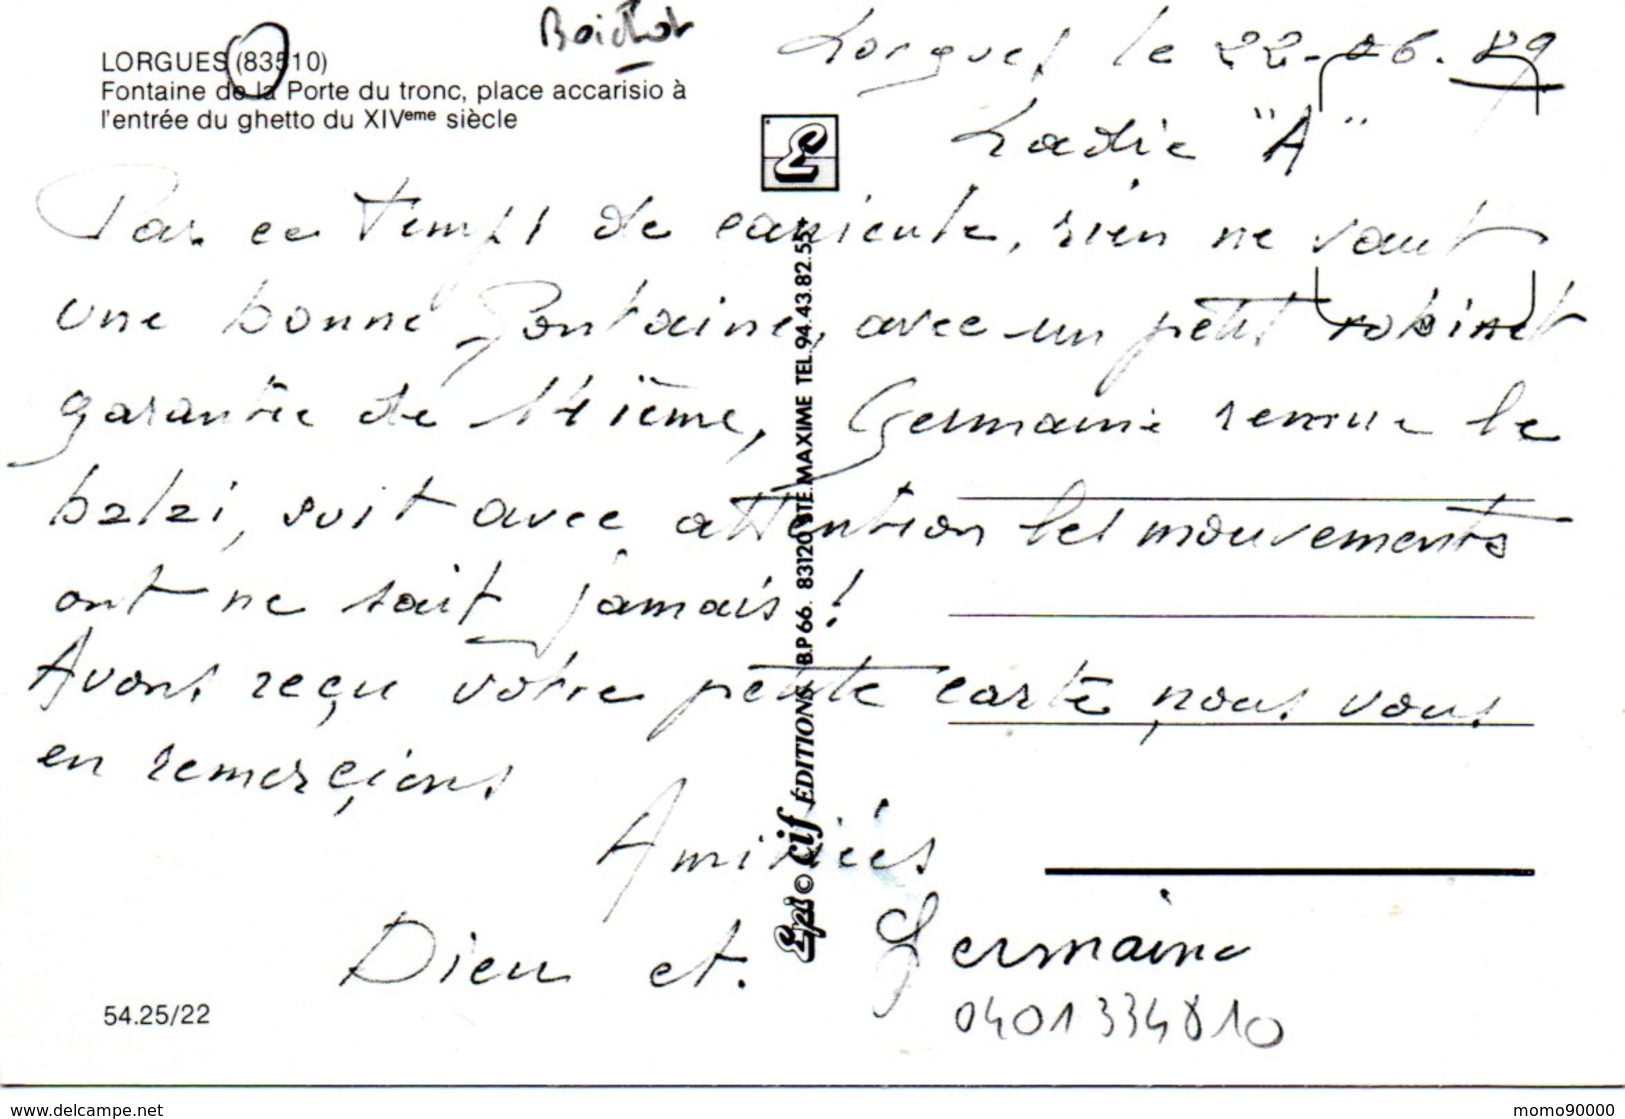 Boichot
LORGUES (83510)
Fontaine de la Porte du tronc, place accarisio à
l'entrée du ghetto du XIVeme siècle
Lorgues le 22-06.89
Ladie "A"
Par ce temps de canicule, rien ne vaut
une bonne fontaine, avec un petit robinet
garantie de 14ième, Germaine remue le
balai, suit avec attention les mouvements
ont ne sait jamais !
Avons reçu votre petite carte, nous vous
en remerçions
Amitiées
Dieu et. Germaine
0401334810
54.25/22
Epi © cif ÉDITIONS B.P 66. 83120 STE.MAXIME TEL.94.43.82.55+
www.delcampe.net
momo90000